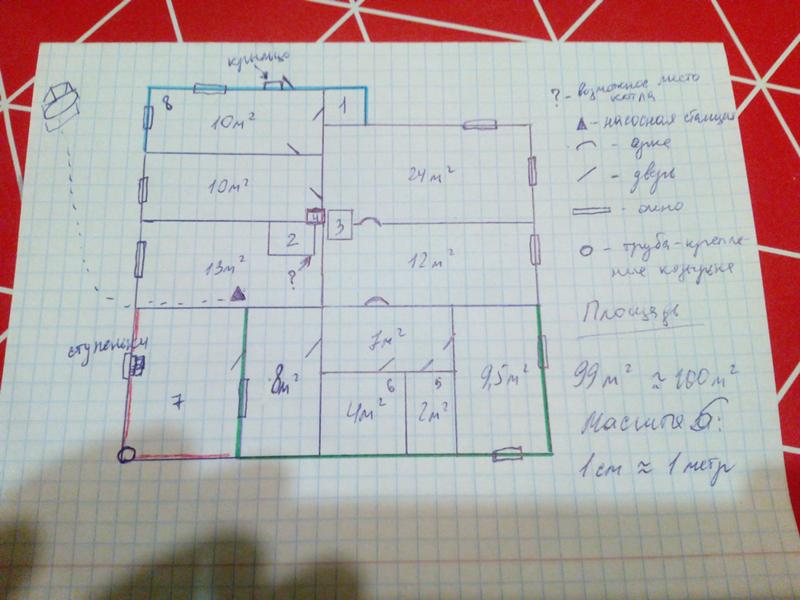 крыльцо
8
1
10м²
10м²
24м²
4
3
2
13м²
?
12м²
ступеньки
7
8м²
7м²
6
5
4м²
2м²
9,5м²
? - возможное место
котла
- насосная станция
- арка
- дверь
- окно
- труба-крепле-
ние
Площадь
99м² ≈ 100м²
Масштаб:
1 см ≈ 1 метр